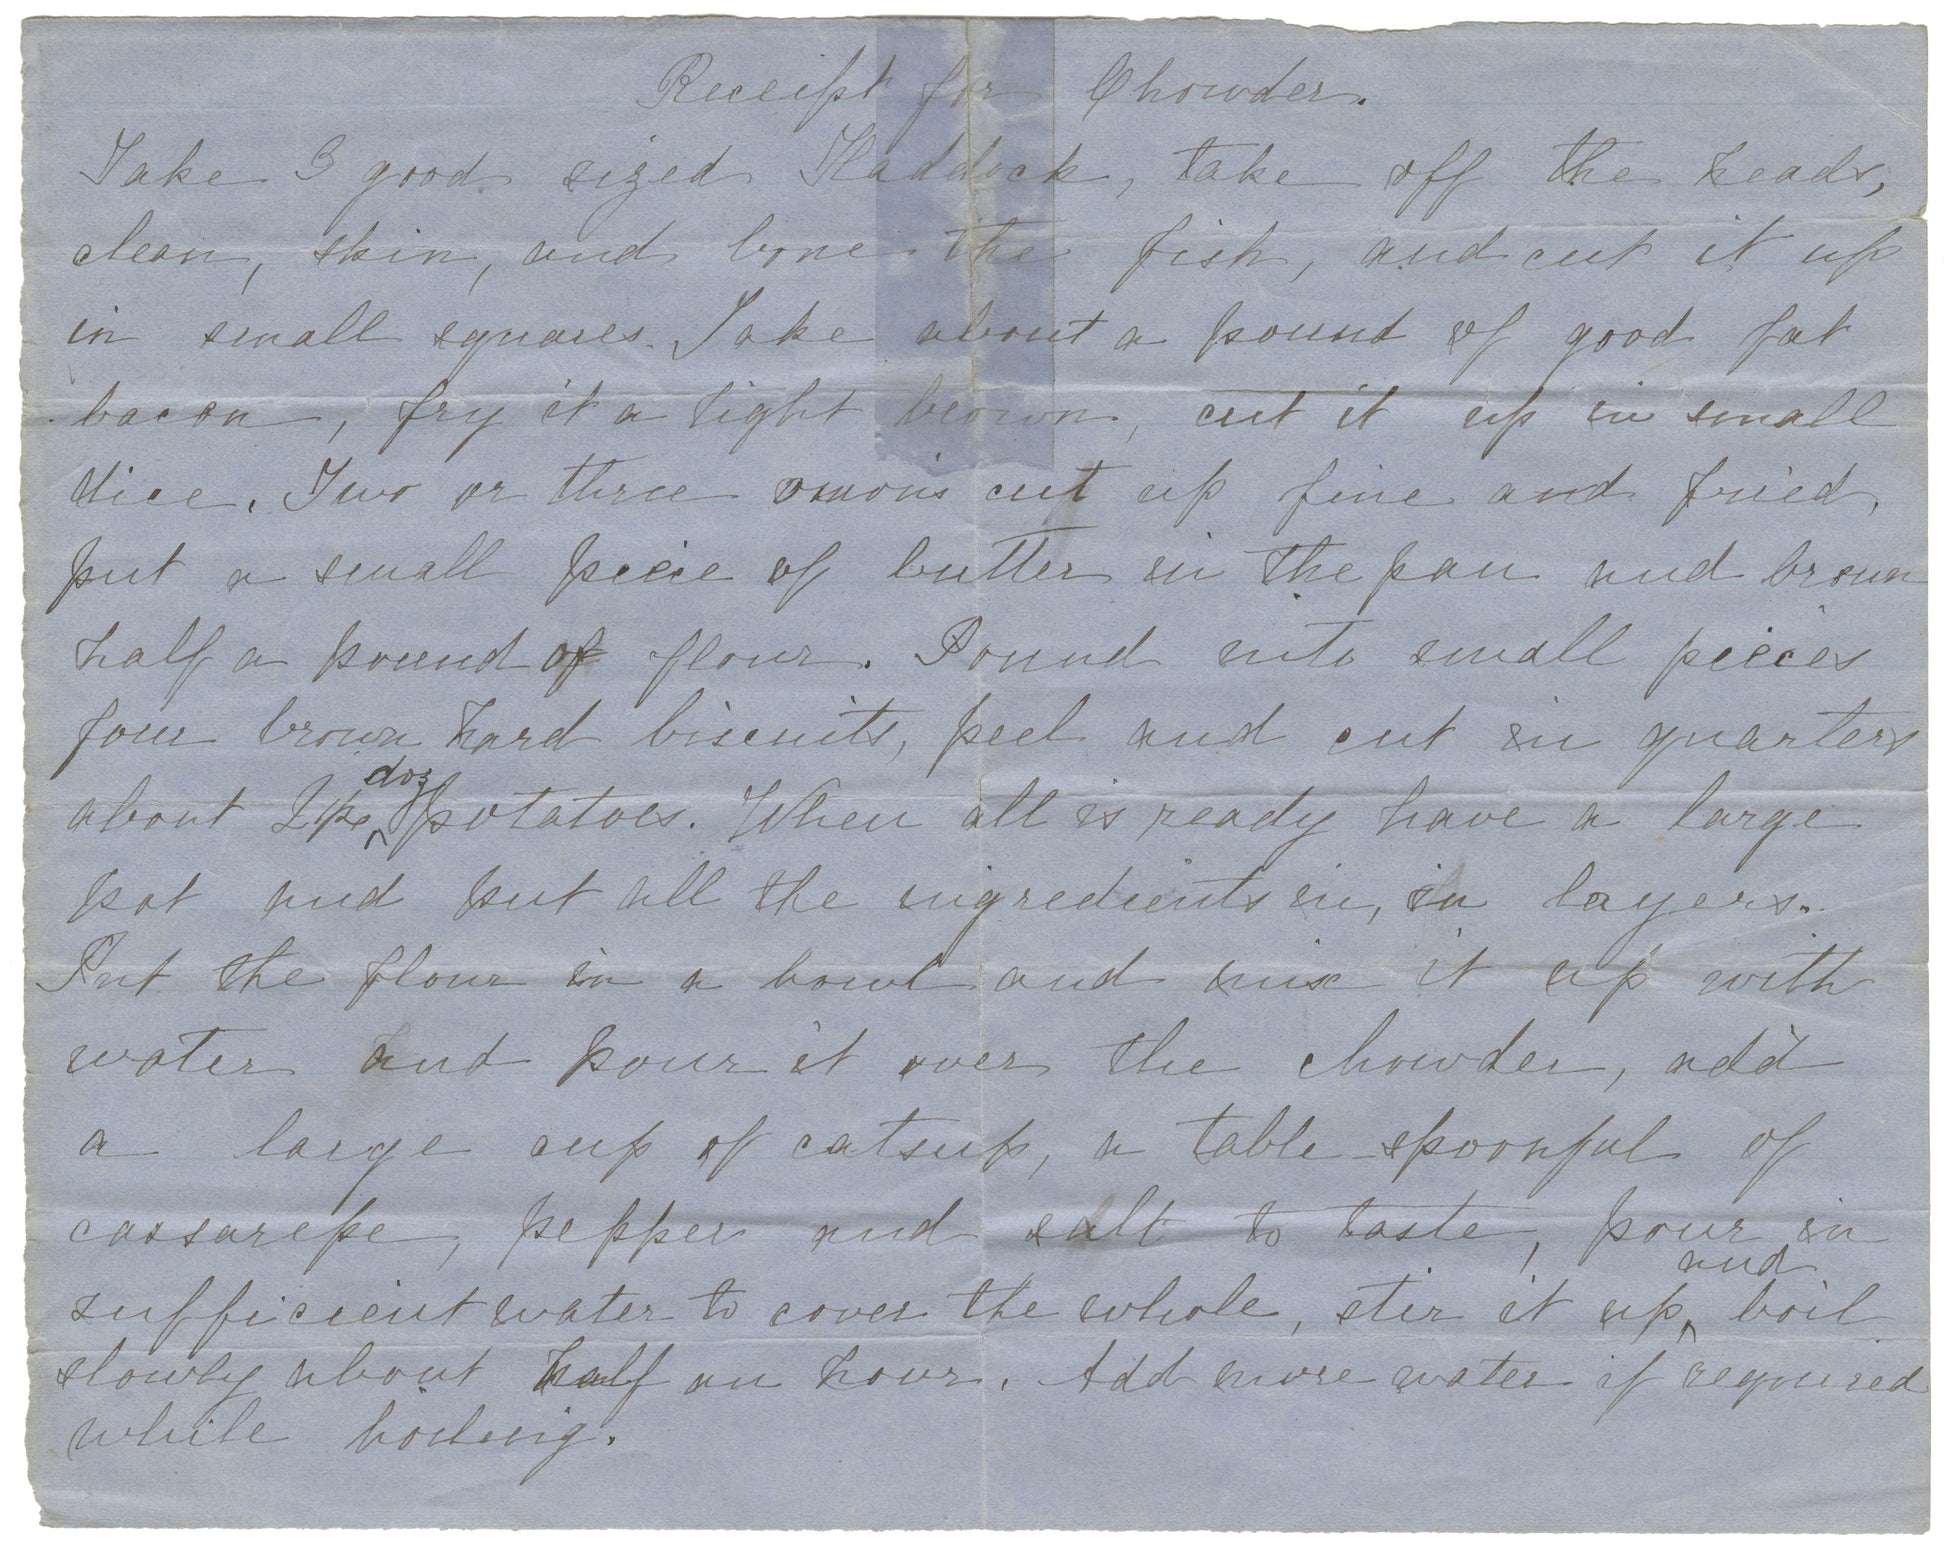 Receipt for Chowder.
Take 3 good sized Haddock, take off the heads,
clean, skin, and bone the fish, and cut it up
in small squares. Take about a pound of good fat
bacon, fry it a light brown, cut it up in small
dice. Two or three onions cut up fine and fried,
put a small piece of butter in the pan and brown
half a pound of flour. Pound into small pieces
four brown hard biscuits, peel and cut in quarters
doz
about potatoes. When all is ready have a large
pot and put all the ingredients in, in layers.
Put the flour in a bowl and mix it up with
water and pour it over the chowder, add
a large cup of catsup, a table-spoonful of
cassarepe, pepper and salt to taste, pour in
and
sufficient water to cover the whole, stir it up, boil
slowly about half an hour. Add more water if required
while boiling.